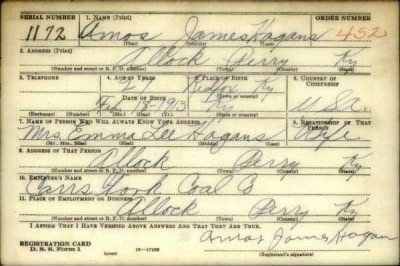 SERIAL NUMBER 1. NAME (Print) ORDER NUMBER
1172 Amos James Hagans 452
(First) (Middle) (Last)
2. ADDRESS (Print)
Allock Perry Ky
(Number and street or R. F. D. number) (Town) (County) (State)
3. TELEPHONE 4. AGE IN YEARS 5. PLACE OF BIRTH 6. COUNTRY OF CITIZENSHIP
Ky
(Town or county)
DATE OF BIRTH
Feb 18 1913 Ky U.S.A.
(Exchange) (Number) (Mo.) (Day) (Yr.) (State or country)
7. NAME OF PERSON WHO WILL ALWAYS KNOW YOUR ADDRESS 8. RELATIONSHIP OF THAT PERSON
Mrs. Emma Lee Hagans Wife
(Mr., Mrs., Miss) (First) (Middle) (Last)
9. ADDRESS OF THAT PERSON
Allock Perry Ky
(Number and street or R. F. D. number) (Town) (County) (State)
10. EMPLOYER'S NAME
Carrs Fork Coal Co
11. PLACE OF EMPLOYMENT OR BUSINESS
Allock Perry Ky
(Number and street or R. F. D. number) (Town) (County) (State)
I AFFIRM THAT I HAVE VERIFIED ABOVE ANSWERS AND THAT THEY ARE TRUE.
REGISTRATION CARD
D. S. S. FORM 1 (over) 16—17105 Amos James Hagan
(Registrant's signature)